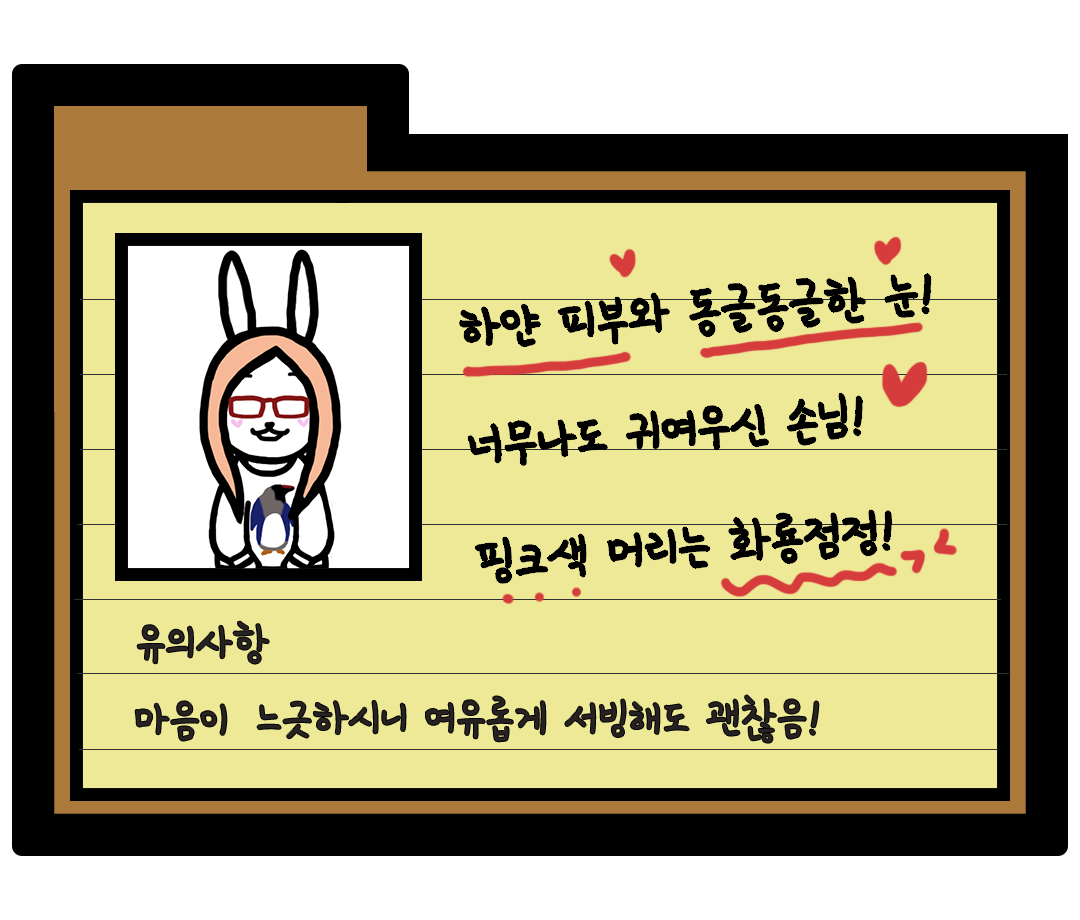 하얀 피부와 동글동글한 눈!
너무나도 귀여우신 손님!
핑크색 머리는 화룡점정!
유의사항
마음이 느긋하시니 여유롭게 서빙해도 괜찮음!